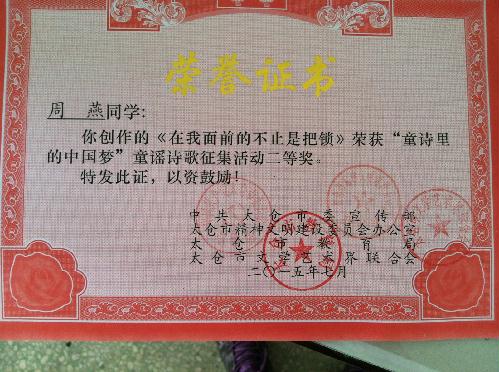 荣誉证书
周 燕同学:
你创作的《在我面前的不止是把锁》荣获“童诗里
的中国梦”童谣诗歌征集活动二等奖。
特发此证,以资鼓励!
中共太仓市委宣传部
太仓市精神文明建设委员会办公室
太仓市教育局
太仓市文学艺术界联合会
二〇一五年七月